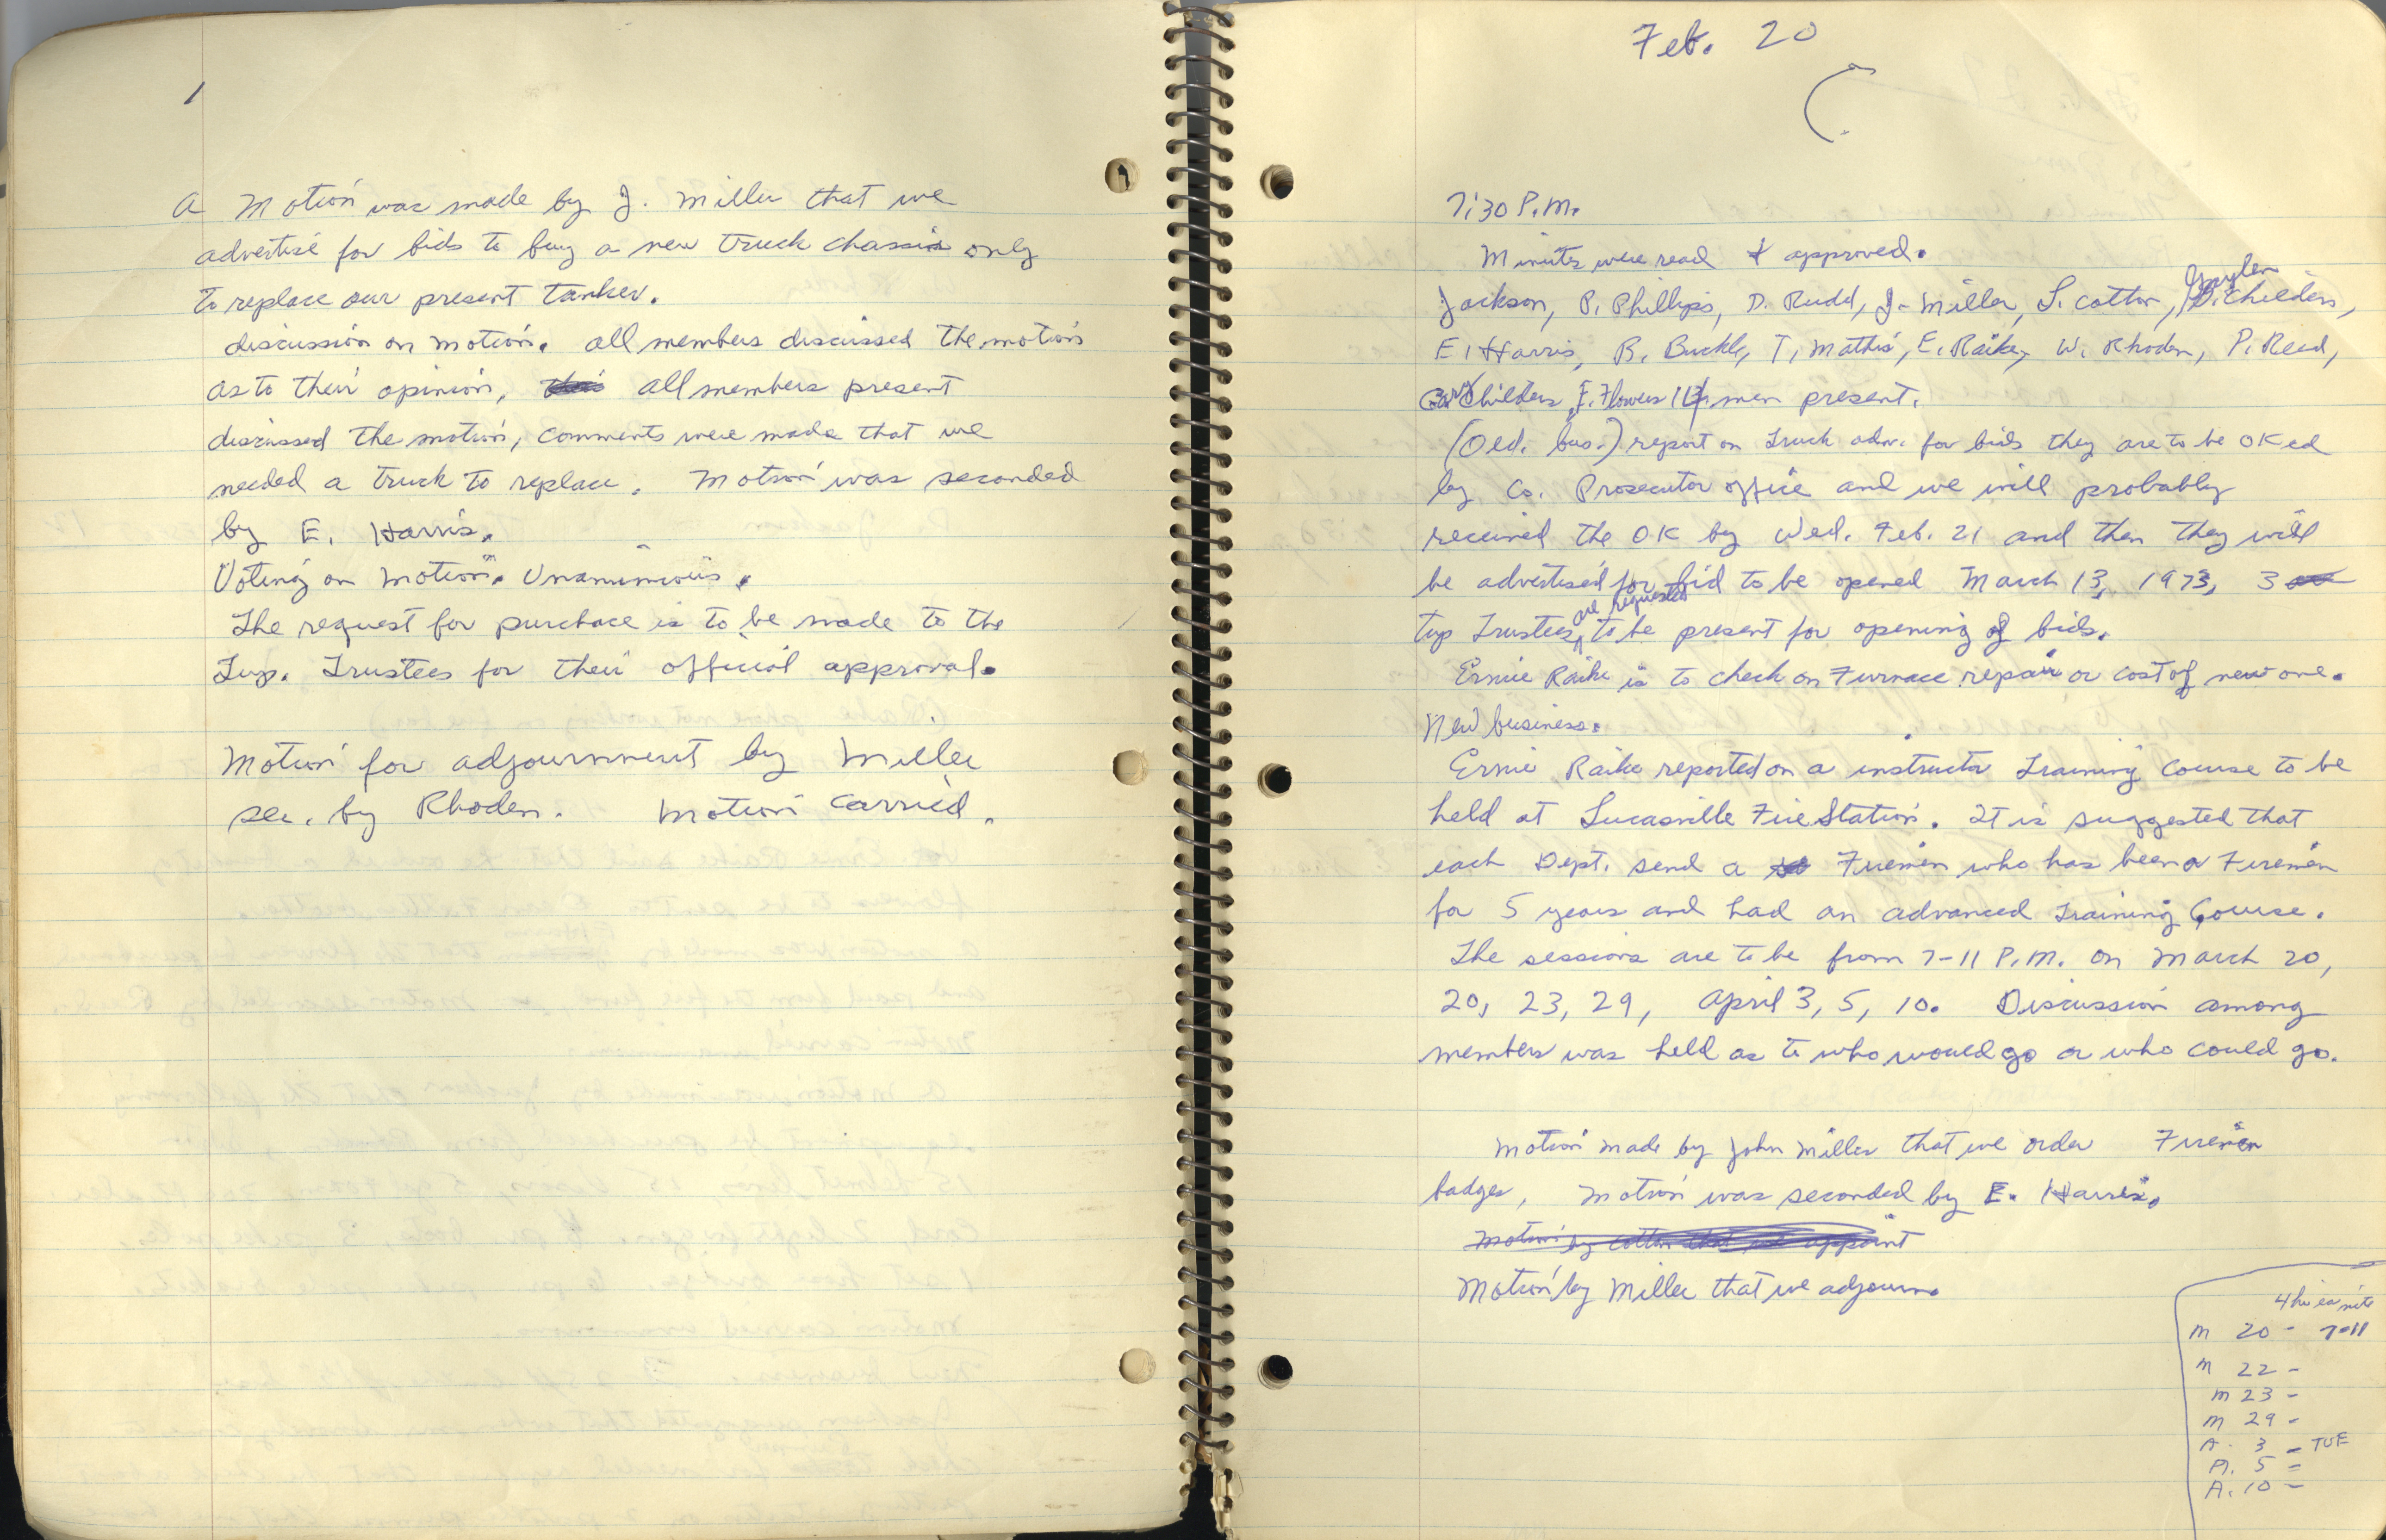 1
A Motion was made by J. Miller that we
advertise for bids to buy a new truck chassis only
to replace our present tanker.
discussion on motion. all members discussed the motion
as to their opinion, all members present
discussed the motion, comments were made that we
needed a truck to replace. Motion was seconded
by E. Harris.
Voting on motion. Unanimous.
The request for purchase is to be made to the
Twp. Trustees for their official approval.
Motion for adjournment by Miller
sec. by Rhoden. Motion Carried.
Feb. 20
7:30 P.M.
Minutes were read & approved.
Jackson, P. Phillips, D. Rudd, J. Miller, L. Cotton, Childers,
E. Harris, B. Buckle, T. Mathis, E. Raike, W. Rhoden, P. Reed,
Childers, E. Flowers men present.
(Old. bus.) report on Truck adv. for bids they are to be OK ed
by Co. Prosecutor office and we will probably
received the OK by Wed. Feb. 21 and then they will
be advertised for bid to be opened March 13, 1973, 3
twp Trustees are requested to be present for opening of bids.
Ernie Raike is to check on Furnace repair or cost of new one.
New business.
Ernie Raike reported on a instructor Training Course to be
held at Lucasville Fire Station. It is suggested that
each Dept. send a Firemen who has been a Firemen
for 5 years and had an advanced Training Course.
The sessions are to be from 7-11 P.M. on March 20,
20, 23, 29, April 3, 5, 10. Discussion among
members was held as to who would go or who could go.
Motion made by John Miller that we order Firemen
badges, Motion was seconded by E. Harris.
Motion by Cotton that we appoint
Motion by Miller that we adjourn.
4 hr ea nite
M 20 - 7-11
M 22 -
M 23 -
M 29 -
A. 3 - TUE
A. 5 -
A. 10 -